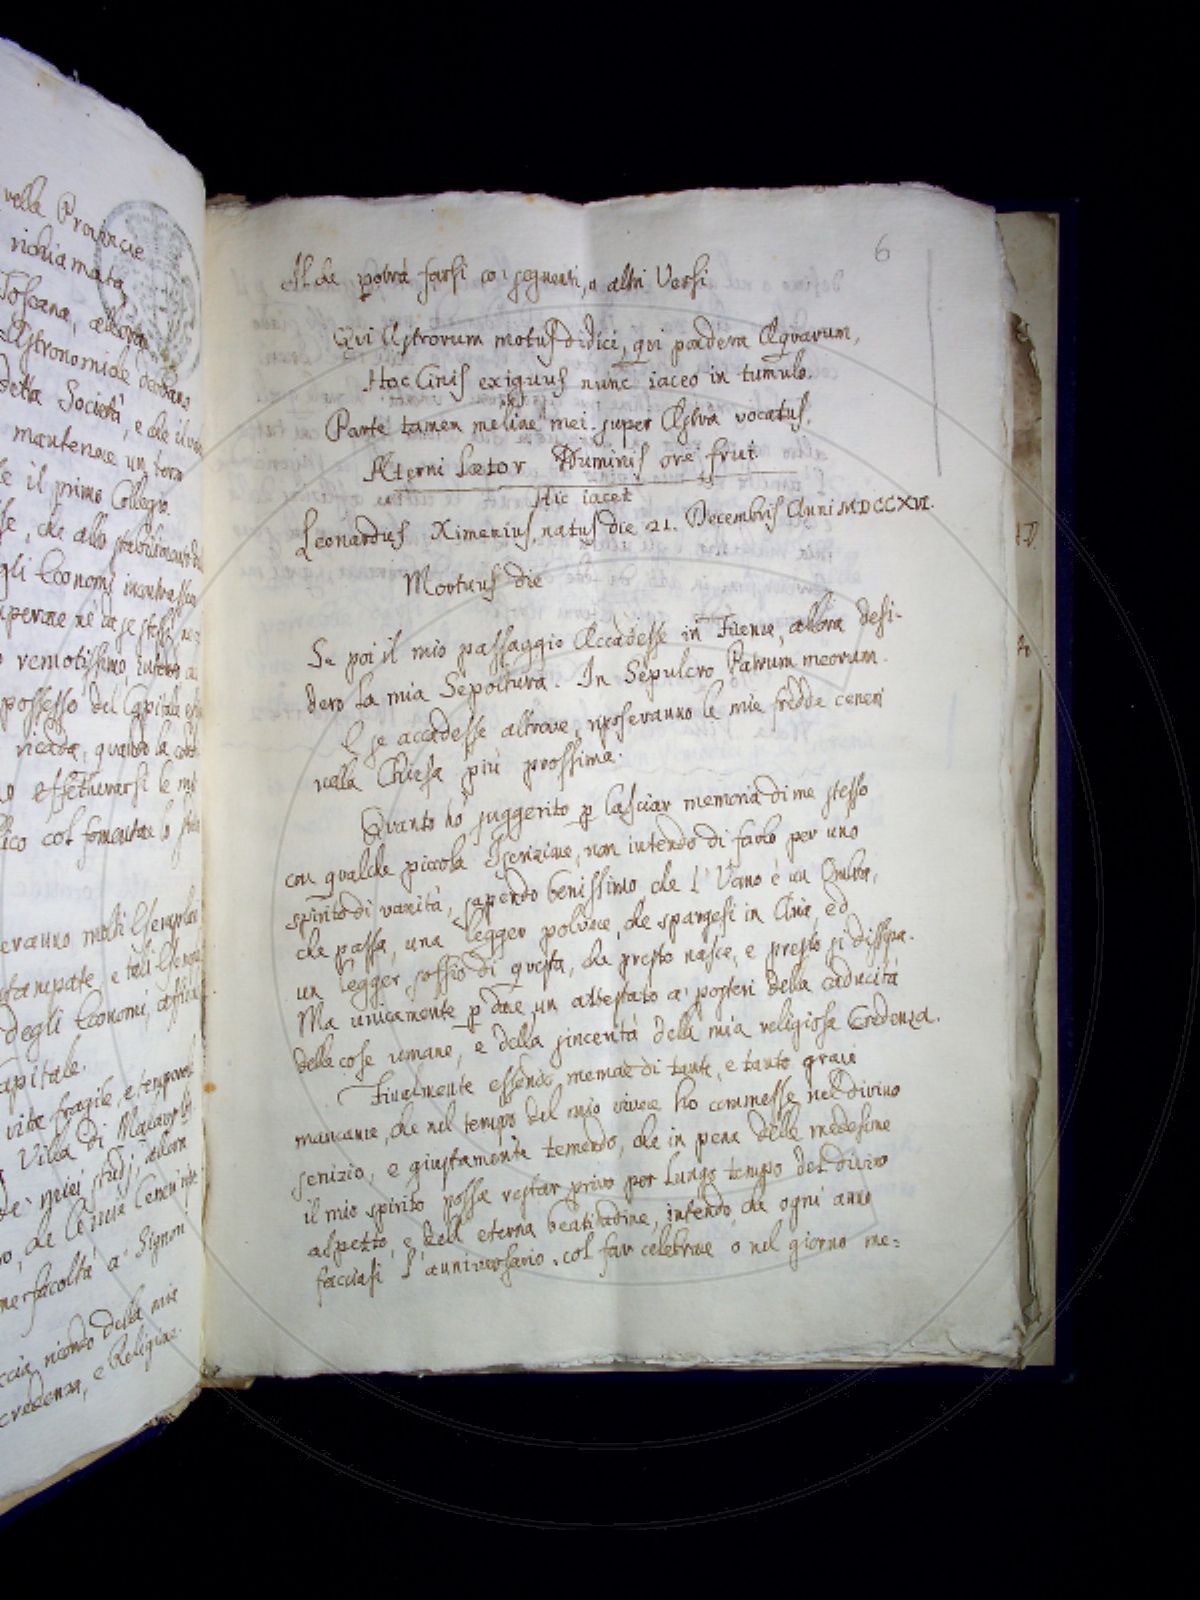 velle Provincie
richiamata,
Toscana, allora
Astronomiche debbano
detta Società, e che il
mantenere un
il primo Collegio.
che allo stabilimento
gli Economi
né da se stessi
remotissimo
possesso del Capitale
ricada, quando la
effettuarsi le
col fomentare lo
eranno molti Esemplari
stampate, e tali Esem
degli Economi,
apitale.
vita fragile, e temporale
Villa di
de' miei studj,
che le mie Ceneri
facoltà a' Signori
ccia ricordo della mia
credenza, e Religione.
6
Al che potrà farsi co' seguenti, o altri Versi
Qui Astrorum motus didici, qui pondera Aquarum,
Hoc Cinis exiguus nunc iaceo in tumulo.
Parte tamen meliore mei super Astra vocatus,
Æterni lætor Numinis ore frui.
Hic iacet
Leonardus Ximenius, natus die 21. Decembris Anni MDCCXVI.
Mortuus die
Se poi il mio passaggio Accadesse in Firenze, allora desi-
dero la mia Sepoltura. In Sepulcro Patrum meorum.
E se accadesse altrove, riposeranno le mie fredde ceneri
nella Chiesa più prossima.
Quanto hò suggerito p lasciar memoria di me stesso
con qualche piccola Iscrizione, non intendo di farlo per uno
spirito di vanità, sapendo benissimo che l'Uomo è un Ombra,
che passa, una legger polvere, che spargesi in Aria, ed
un legger soffio di questa, che presto nasce, e presto si dissipa.
Ma unicamente p dare un attestato a' posteri della caducità
delle cose umane, e della sincerità della mia religiosa Credenza.
Finalmente essendo memore di tante, e tanto gravi
mancanze, che nel tempo del mio vivere ho commesse nel divino
servizio, e giustamente temendo, che in pena delle medesime
il mio spirito possa restar privo per lungo tempo del divino
aspetto, e dell' eterna beatitudine, intendo che ogni anno
facciasi l'anniversario, col far celebrare o nel giorno me=